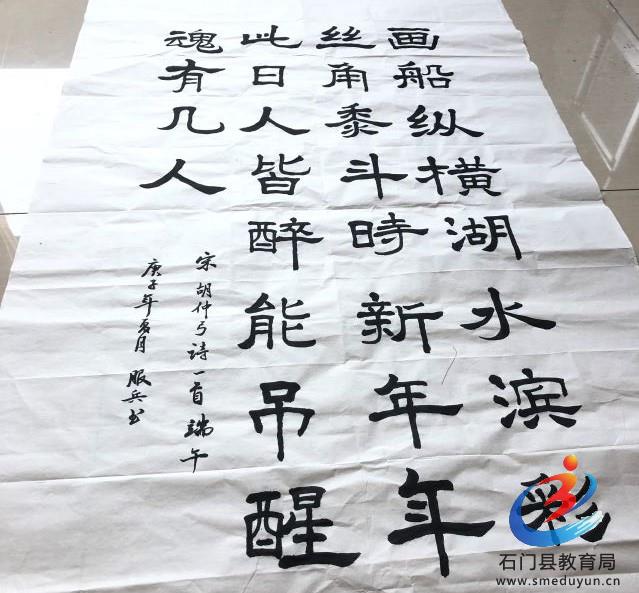 画船纵横湖水滨彩
丝角黍斗時新年年
此日人皆醉能吊醒
魂有几人
宋胡仲弓诗一首 端午
庚子年夏月 服兵书
石门县教育局
www.smeduyun.cn